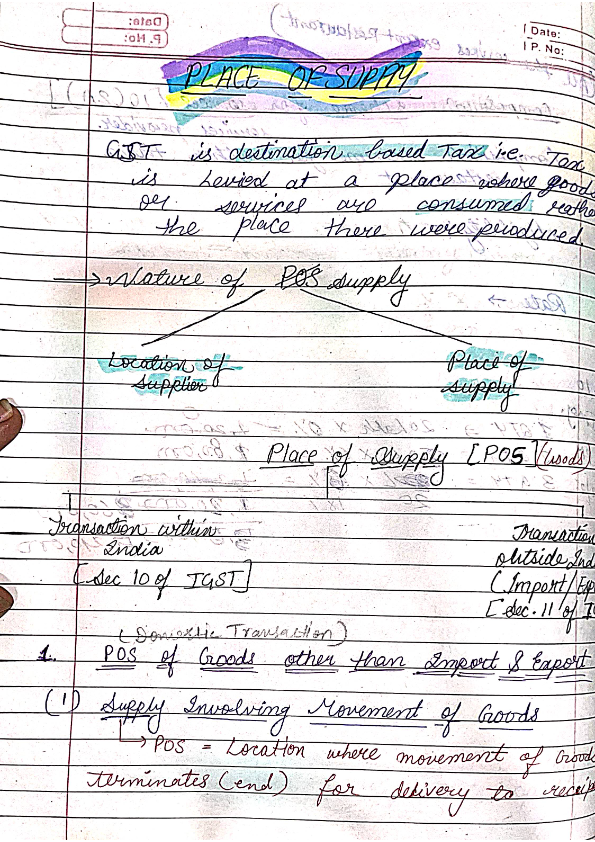 Date:
P. No:
Date:
P. No:
PLACE OF SUPPLY
GST is destination based Tax i.e. Tax
is levied at a place where goods
or services are consumed rathe
the place there were produced
→ Nature of POS supply
Location of
supplier
Place of
supply
Place of Supply [POS] (Goods)
Transaction within
India
[Sec 10 of IGST]
Transaction
outside Ind
(Import/Exp
[Sec. 11 of I
(Domestic Transaction)
1. POS of Goods other than Import & Export
(1) Supply Involving Movement of Goods
→ POS = Location where movement of Goods
terminates (end) for delivery to recip